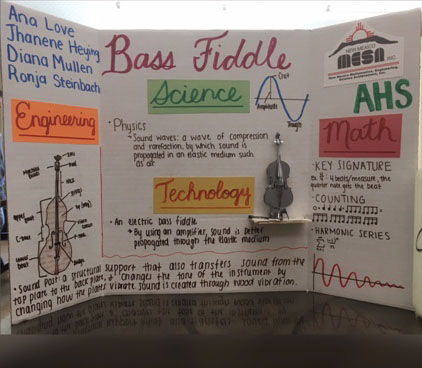 Ana Love
Jhanene Heying
Diana Mullen
Ronja Steinbach
Bass Fiddle
NEW MEXICO
MESA INC.
AHS
Engineering
Science
Crest
Amplitude
Trough
• Physics
• Sound waves: a wave of compression
and rarefaction, by which sound is
propagated in an elastic medium such
as air
Technology
• An electric bass fiddle
• By using an amplifier, sound is better
propagated through the elastic medium
Math
• KEY SIGNATURE
4 beats/measure, the
quarter note gets the beat
• COUNTING
• HARMONIC SERIES
• Sound Post: a structural support that also transfers sound from the
top plate to the back plate, & changes the tone of the instrument by
changing how the plates vibrate. Sound is created through wood vibration.